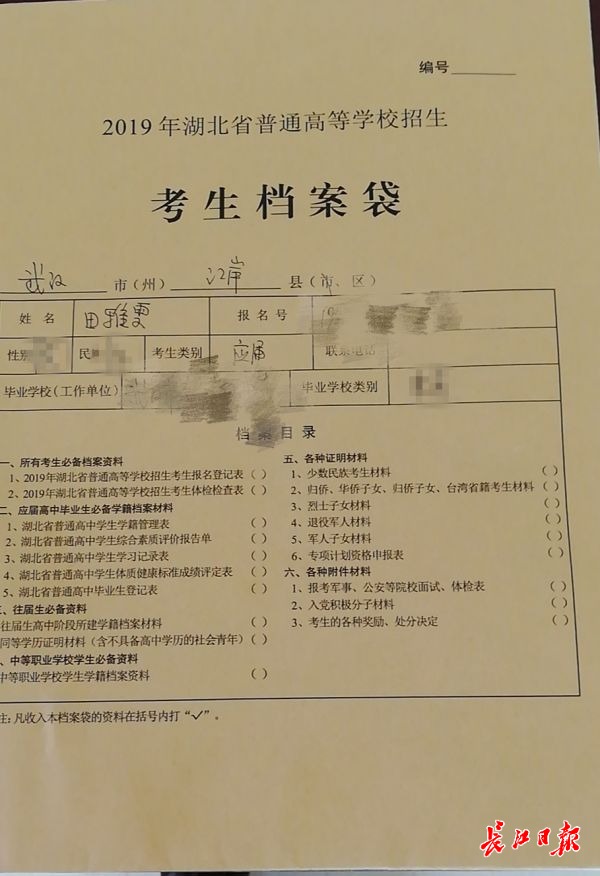 编号
2019年湖北省普通高等学校招生
考生档案袋
武汉 市(州) 江岸 县(市、区)
姓名 田雅雯 报名号
性别 民 考生类别 应届 联系电话
毕业学校(工作单位) 毕业学校类别
档案目录
一、所有考生必备档案资料
1、2019年湖北省普通高等学校招生考生报名登记表 ( )
2、2019年湖北省普通高等学校招生考生体检检查表 ( )
二、应届高中毕业生必备学籍档案材料
1、湖北省普通高中学生学籍管理表 ( )
2、湖北省普通高中学生综合素质评价报告单 ( )
3、湖北省普通高中学生学习记录表 ( )
4、湖北省普通高中学生体质健康标准成绩评定表 ( )
5、湖北省普通高中毕业生登记表 ( )
三、往届生必备资料
往届生高中阶段所建学籍档案材料 ( )
同等学历证明材料(含不具备高中学历的社会青年) ( )
、中等职业学校学生必备资料
中等职业学校学生学籍档案资料 ( )
五、各种证明材料
1、少数民族考生材料 ( )
2、归侨、华侨子女、归侨子女、台湾省籍考生材料 ( )
3、烈士子女材料 ( )
4、退役军人材料 ( )
5、军人子女材料 ( )
6、专项计划资格申报表 ( )
六、各种附件材料
1、报考军事、公安等院校面试、体检表 ( )
2、入党积极分子材料 ( )
3、考生的各种奖励、处分决定 ( )
注:凡收入本档案袋的资料在括号内打“✓”。
长江日报